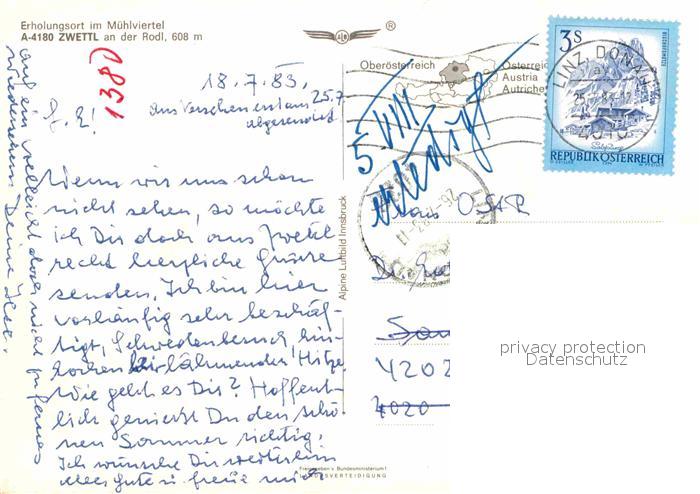 Erholungsort im Mühlviertel
A-4180 ZWETTL an der Rodl, 608 m
®
Oberösterreich
Österreic
Austria
Autriche
3 S
LINZ, DONAU
Salzburg
REPUBLIK ÖSTERREICH
1380
18.7.83,
aus Versehen erst am 25.7
abgesendet
5 VIII
erledigt
L. E!
Wenn wir uns schon
nicht sehen, so möchte
ich Dir doch aus Zwettl
recht herzliche Grüsse
senden. Ich bin hier
vorläufig sehr beschäf-
tigt, Schwedenbesuch,
lähmender Hitze.
Wie geht es Dir? Hoffent-
lich genießt Du den schö-
nen Sommer richtig.
Ich wünsche Dir weiterhin
alles Gute u. freue mich
auf ein vielleicht doch nicht zu fernes
Wiedersehen Deine Ilse.
Alpine Luftbild Innsbruck
OStR
Dr.
4202
4020
privacy protection
Datenschutz
Freigegeben v. Bundesministerium f.
LANDESVERTEIDIGUNG